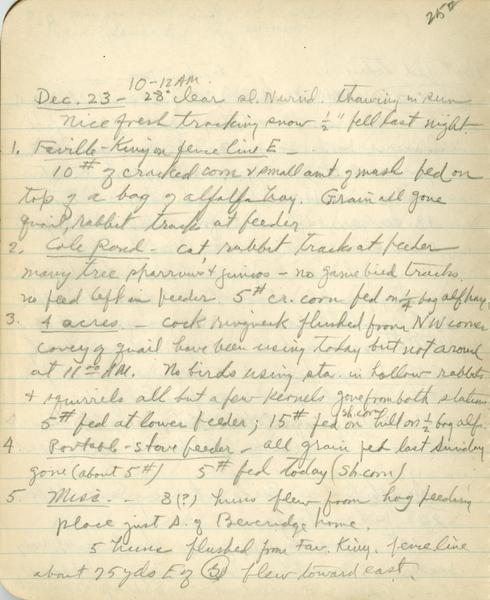 25#
10-12 AM.
Dec. 23 - 28° clear sl. N wind. thawing in sun
Nice fresh tracking snow ½" fell last night.
1. Faville-Kingon fence line E -
10# of cracked corn & small amt. of mash fed on
top of a bag of alfalfa hay. Grain all gone
quail, rabbit track at feeder
2. Cole Pond - cat rabbit tracks at feeder
many tree sparrows & juncos - no game bird tracks.
no feed left in feeder. 5# cr. corn fed on ¼ bag alf hay.
3. 4 acres. - cock ringneck flushed from NW corner
covey of quail have been using today but not around
at 11:00 AM. No birds using sta. in hollow rabbits
& squirrels all but a few kernels gone from both stations
sh. corn
5# fed at lower feeder; 15# fed on hill on ½ bag alf.
4 Portable-stove feeder - all grain fed last Sunday
gone (about 5#) 5# fed today (sh. corn)
5 Misc. - 8(?) huns flew from hog feeding
place just S. of Beveridge home.
5 huns flushed from Fav. King. fence line
about 75 yds E of 5 flew toward east.